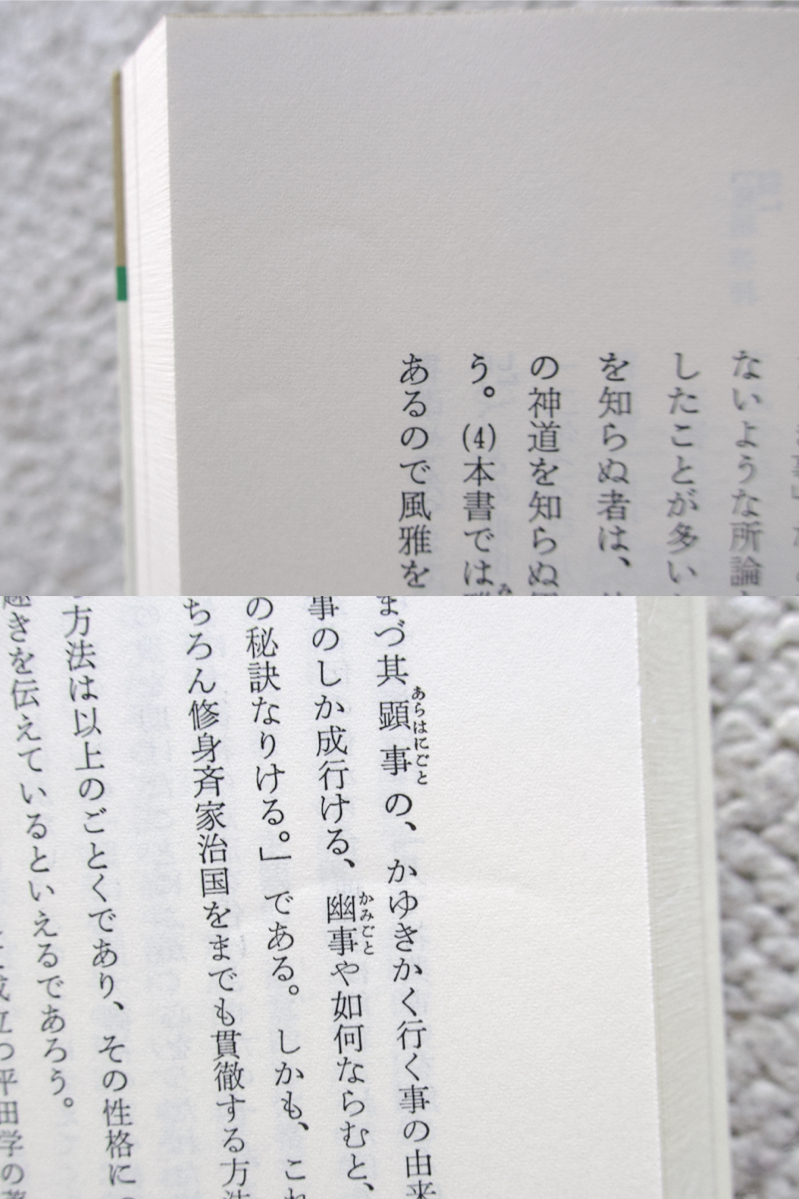 ないような所論
したことが多い
を知らぬ者は、
の神道を知らぬ
う。(4)本書では
あるので風雅を
まづ其顕事の、かゆきかく行く事の由来
あらはにごと
事のしか成行ける、幽事や如何ならむと、
かみごと
の秘訣なりける。」である。しかも、これ
ちろん修身斉家治国をまでも貫徹する方法
方法は以上のごとくであり、その性格に
趣きを伝えているといえるであろう。
成立つ平田学の